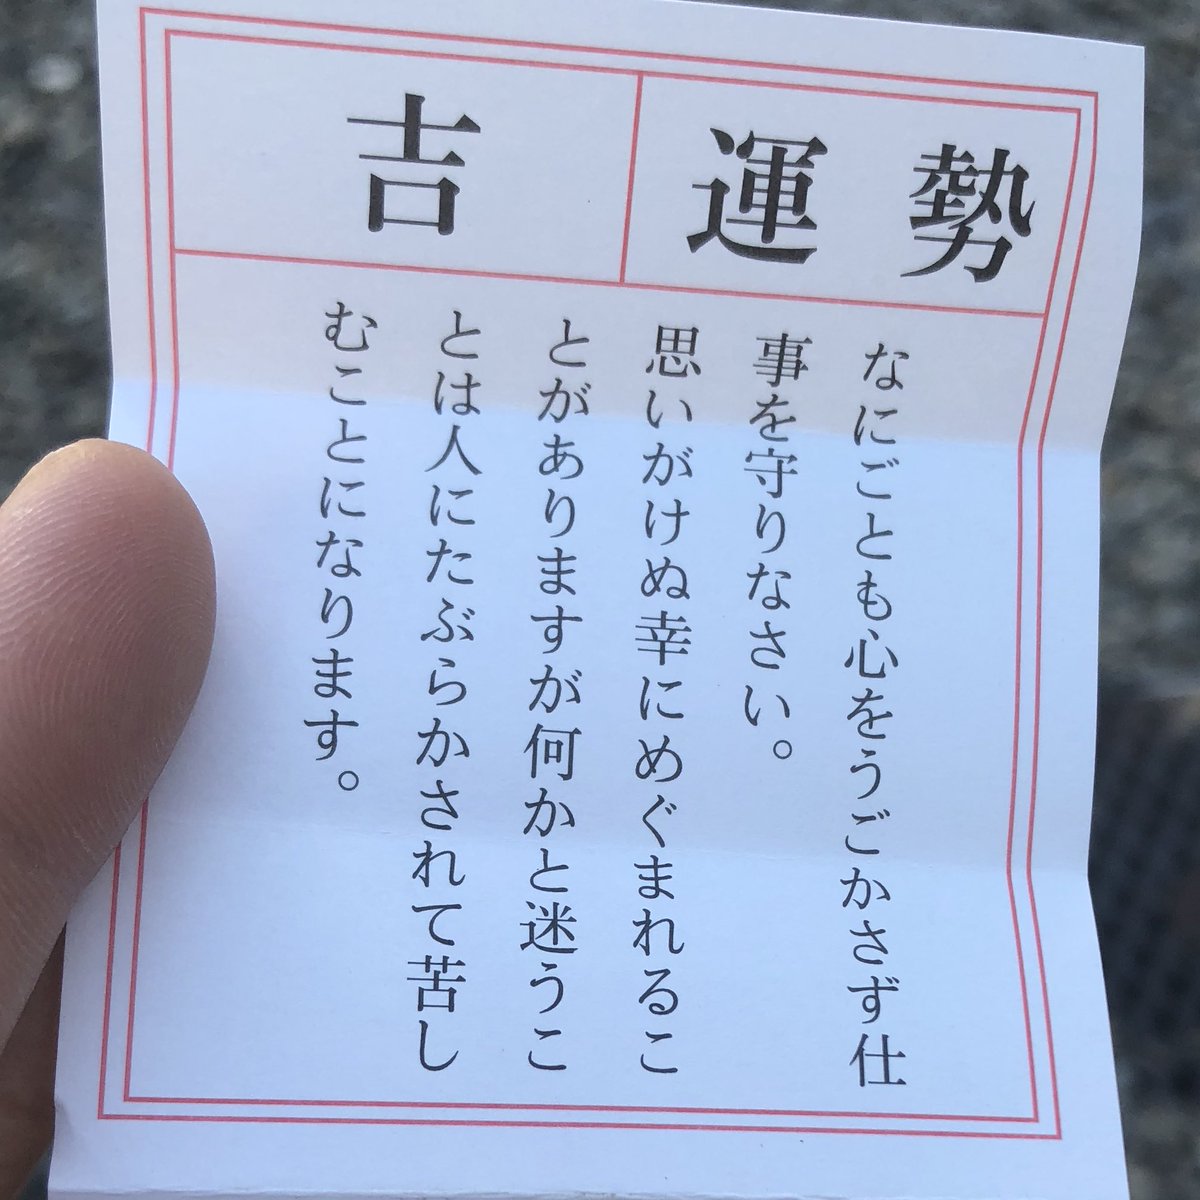 運勢
吉
なにごとも心をうごかさず仕
事を守りなさい。
思いがけぬ幸にめぐまれるこ
とがありますが何かと迷うこ
とは人にたぶらかされて苦し
むことになります。